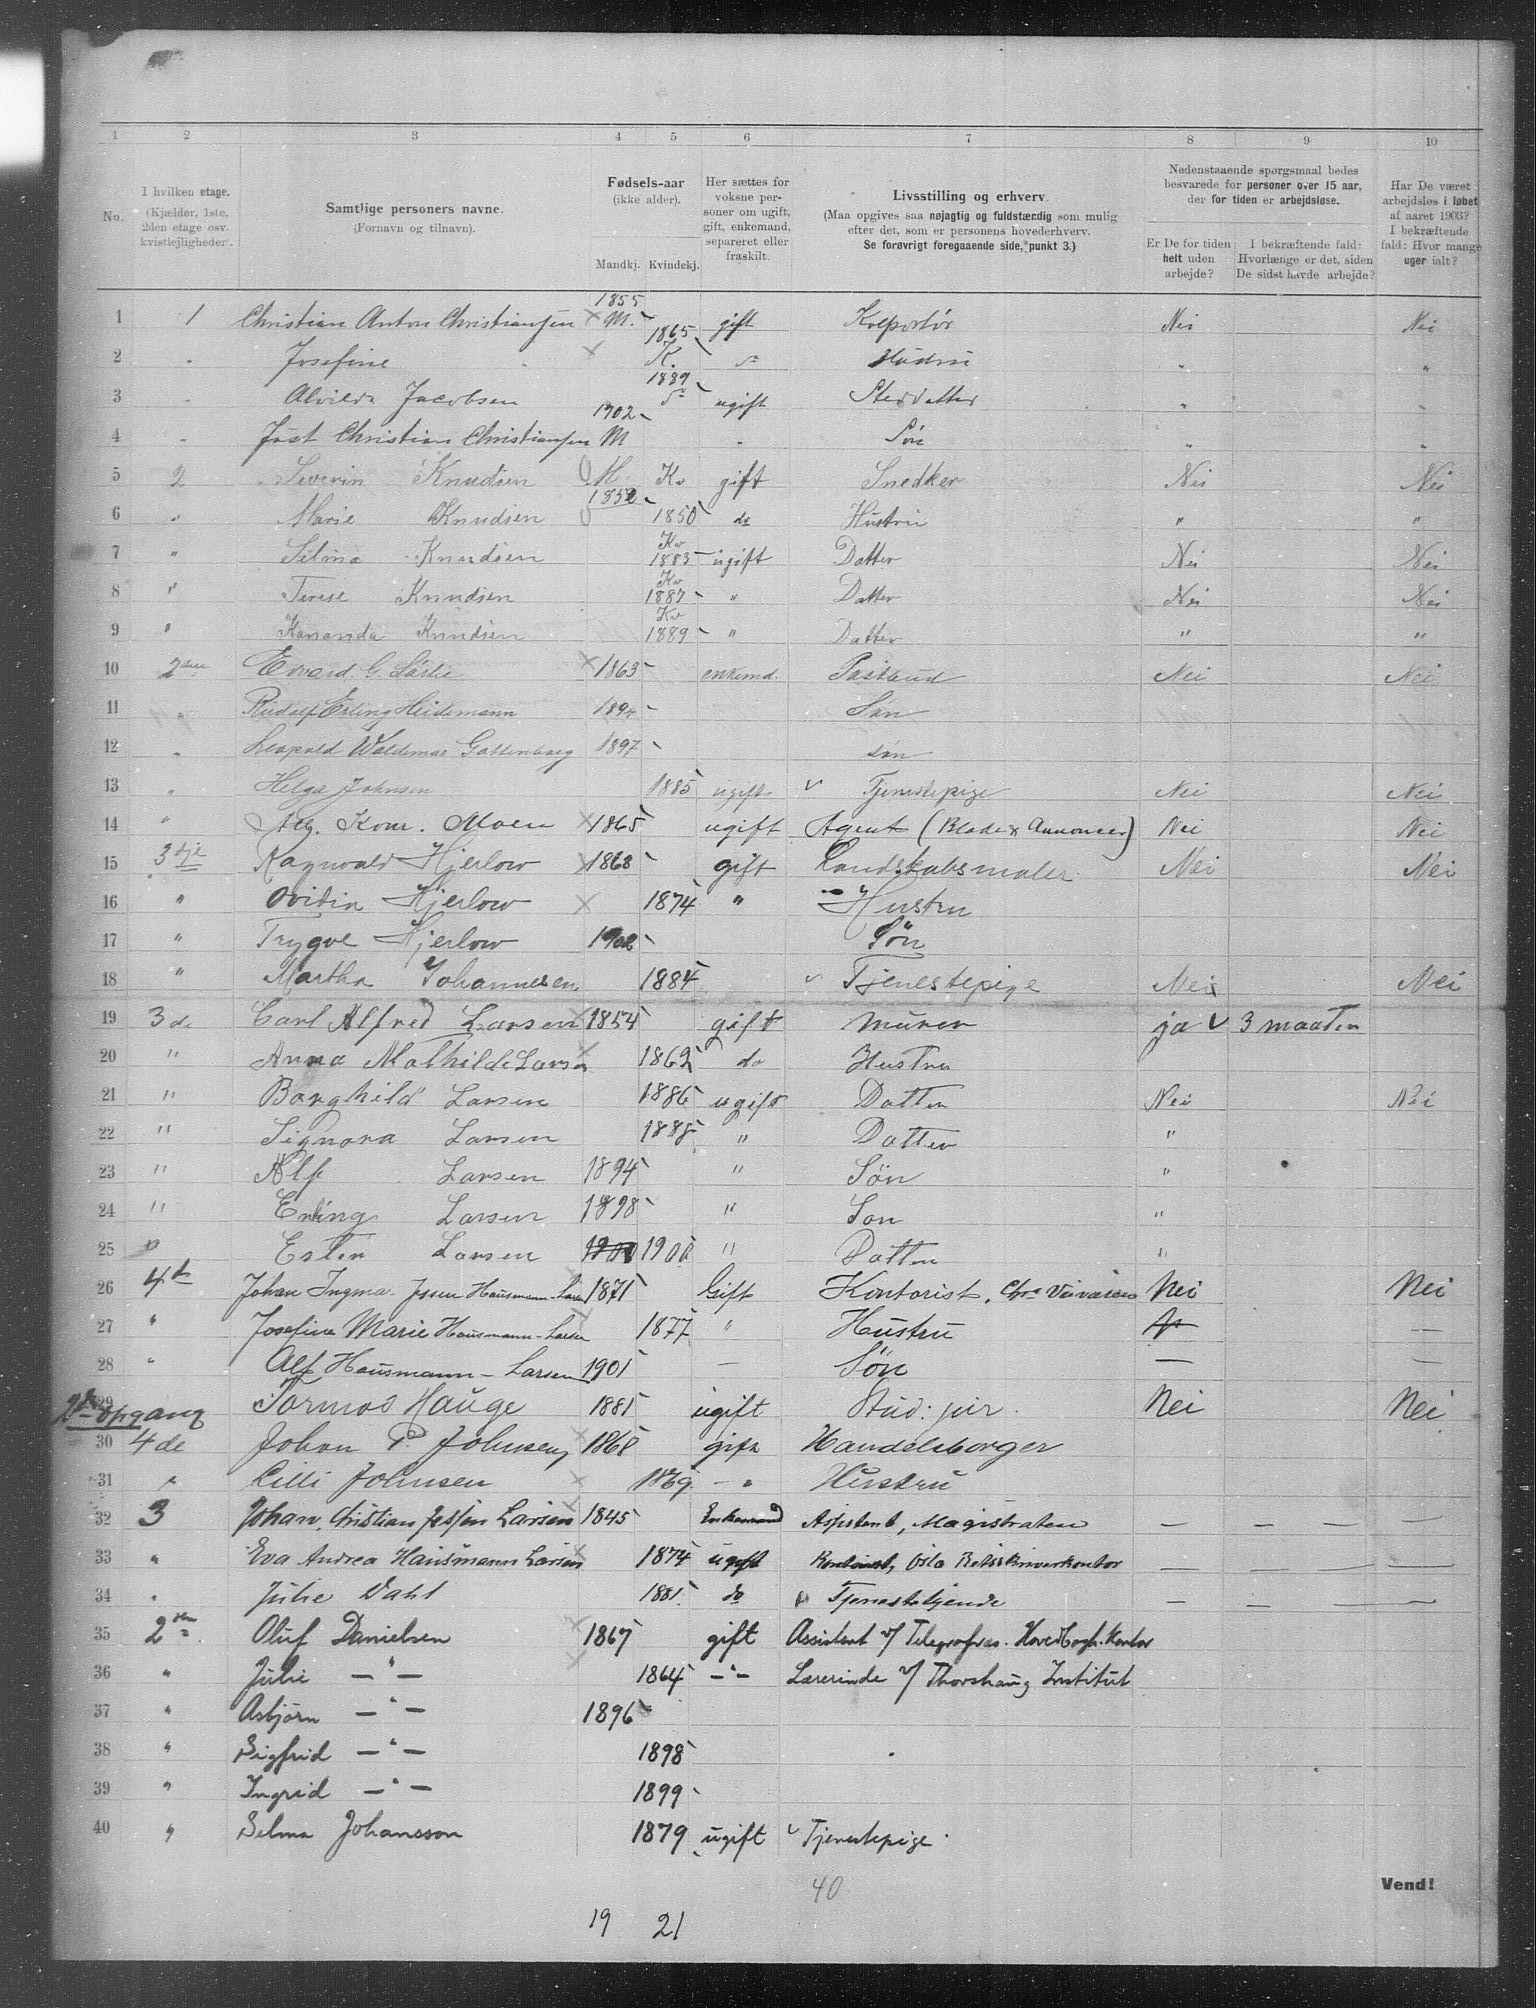 1 2 3 4 5 6 7 8 9 10
No.
I hvilken etage.
(Kjælder, 1ste,
2den etage osv.
kvistlejligheder.
Samtlige personers navne.
(Fornavn og tilnavn).
Fødsels-aar
(ikke alder).
Mandkj. Kvindekj.
Her sættes for
voksne per-
soner om ugift,
gift, enkemand,
separeret eller
fraskilt.
Livsstilling og erhverv.
(Maa opgives saa nøjagtig og fuldstændig som mulig
efter det, som er personens hovederhverv.
Se forøvrigt foregaaende side, punkt 3.)
Nedenstaaende spørgsmaal bedes
besvarede for personer over 15 aar,
der for tiden er arbejdsløse.
Er De for tiden
helt uden
arbejde?
I bekræftende fald:
Hvorlænge er det, siden
De sidst havde arbejde?
Har De været
arbejdsløs i løbet
af aaret 1903?
I bekræftende
fald: Hvor mange
uger ialt?
1 1 Christian Anton Christiansen 1855 M. gift Kolportør Nei Nei
2 " Josefine 1865 K. do Hustru " "
3 " Alvilda Jacobsen 1889 do ugift Steddatter " "
4 " Jost Christian Christiansen 1902 M " Søn " "
5 2 Severin Knudsen M Kv gift Snedker Nei Nei
6 " Marie Knudsen 1852 1850 do Hustru " "
7 " Selma Knudsen Kv 1883 ugift Datter Nei Nei
8 " Terese Knudsen Kv 1887 " Datter Nei Nei
9 " Knudsen Kv 1889 " Datter " "
10 2den Edvard G. 1863 enkemd. Nei Nei
11 " Rudolf Erling Heidemann 1894 Søn
12 " Leopold Waldemar 1897 søn
13 " Helga Johnsen 1885 ugift Tjenestepige Nei Nei
14 " Aug. Konr. Moen 1865 ugift Agent (Blade & Annoncer) Nei Nei
15 3dje Ragnvald Hjerlow 1863 gift Landskabsmaler Nei Nei
16 " Ovidia Hjerlow 1874 " Hustru
17 " Trygve Hjerlow 1902 Søn
18 " Martha Johannesen 1884 Tjenestepige Nei Nei
19 3de Carl Alfred Larsen 1854 gift Murer ja 3 maaten
20 " Anna Mathilde Larsen 1862 do Hustru
21 " Borghild Larsen 1886 ugift Datter Nei Nei
22 " Signora Larsen 1888 " Datter "
23 " Alf Larsen 1894 " Søn "
24 " Erling Larsen 1898 " Søn "
25 " Ester Larsen 1900 1900 " Datter "
26 4de Johan Ingma. Hausmann-Larsen 1871 Gift Kontorist, Nei Nei
27 " Josefine Marie Hausmann-Larsen 1877 " Hustru —
28 " Alf Hausmann-Larsen 1901 — Søn — —
2den opgang
29 Tormod Hauge 1881 ugift Stud: jur. Nei Nei
30 4de Johan P. Johnsen 1868 gift Handelsborger
31 " Cilli Johnsen 1869 — " Hustru
32 3 Johan Christian Jessen Larsen 1845 Enkemand Assistent, Magistraten — — —
33 " Eva Andrea Hausmann Larsen 1874 ugift Kontorist, Oslo — — —
34 " Julie Dahl 1881 do Tjenestetjende — — —
35 2den Oluf Danielsen 1867 gift Assistent v/ Telegrafvæs. Hovedbogh. Kontor
36 " Julie — " — 1864 — " — Lærerinde v/ Thorshaug Institut
37 " Asbjørn — " — 1896
38 " Sigfrid — " — 1898
39 " Ingrid — " — 1899
40 " Selma Johansson 1879 ugift Tjenestepige.
40
Vend!
19 21